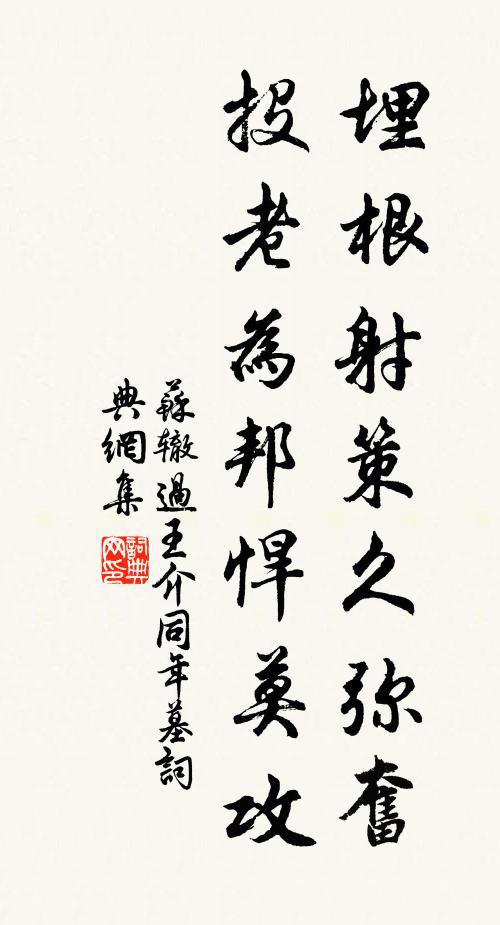 埋根射策久弥奮
投老為邦悍莫攻
蘇轍過王介同年墓詞
典網集
詞典网印